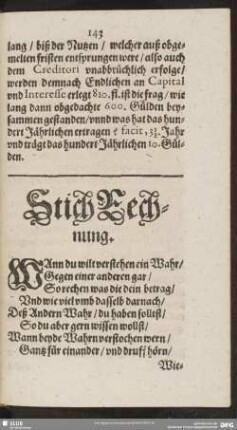 143
lang / biß der Nutzen / welcher auß obge-
melten fristen entsprungen were / also auch
dem Creditori vnabbrüchlich erfolge /
werden demnach Endlichen an Capital
vnd Interesse erlegt 810. fl. ist die frag / wie
lang dann obgedachte 600. Gülden bey-
sammen gestanden / vnnd was hat das hun-
dert Jährlichen ertragen? facit, 3¾. Jahr
vnd trägt das hundert Jährlichen 10. Gül-
den.
Stich Rech-
nung.
WAnn du wilt verstehen ein Wahr /
Gegen einer anderen gar /
So rechen was die dein betrag /
Vnd wie viel vmb dasselb darnach /
Deß Andern Wahr / du haben solleſt /
So du aber gern wissen wollst /
Wann beyde Wahrn verstochen wern /
Gantz für einander / vnd druff hörn /
Wie-
SLUB